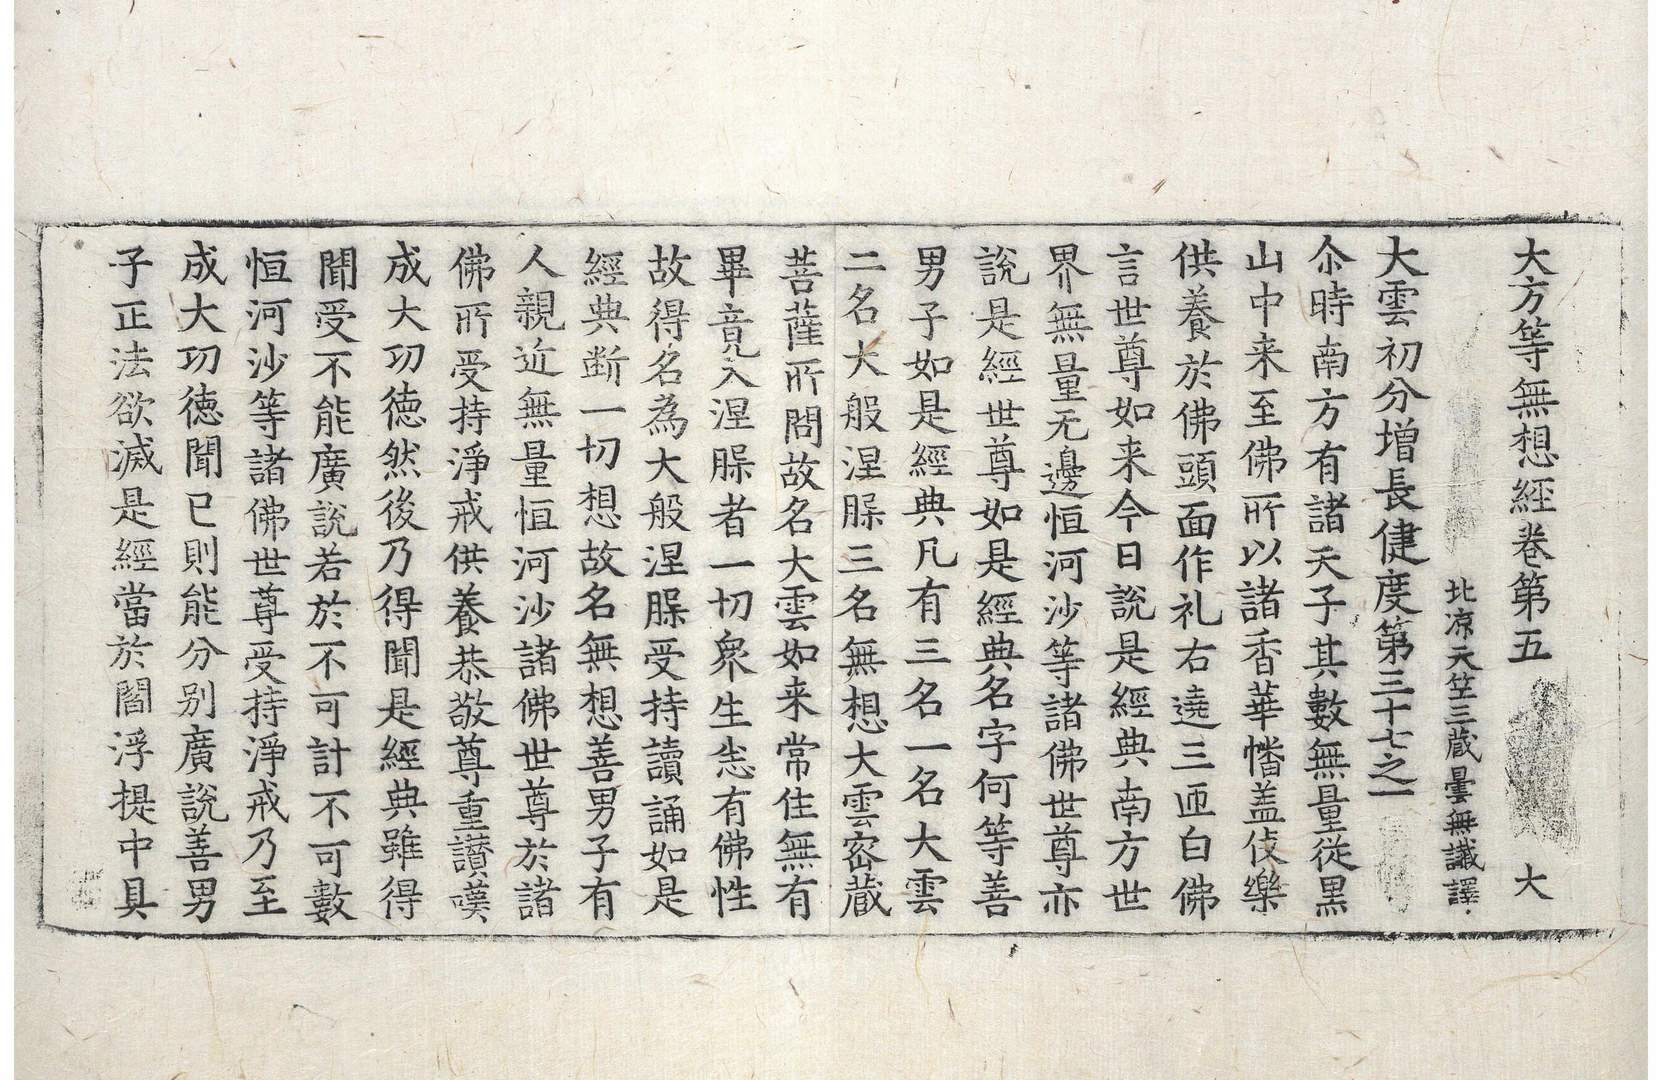 大方等無想經卷第五 大
北涼天竺三藏曇無讖譯
大雲初分增長健度第三十七之一
尒時南方有諸天子其數無量從黑
山中来至佛所以諸香華幡盖伎樂
供養於佛頭面作礼右遶三匝白佛
言世尊如来今日說是經典南方世
界無量无邊恒河沙等諸佛世尊亦
說是經世尊如是經典名字何等善
男子如是經典凡有三名一名大雲
二名大般涅槃三名無想大雲密藏
菩薩所問故名大雲如来常住無有
畢竟入涅槃者一切衆生悉有佛性
故得名為大般涅槃受持讀誦如是
經典断一切想故名無想善男子有
人親近無量恒河沙諸佛世尊於諸
佛所受持淨戒供養恭敬尊重讃嘆
成大功徳然後乃得聞是經典雖得
聞受不能廣說若於不可計不可數
恒河沙等諸佛世尊受持淨戒乃至
成大功徳聞已則能分別廣說善男
子正法欲滅是經當於閻浮提中具